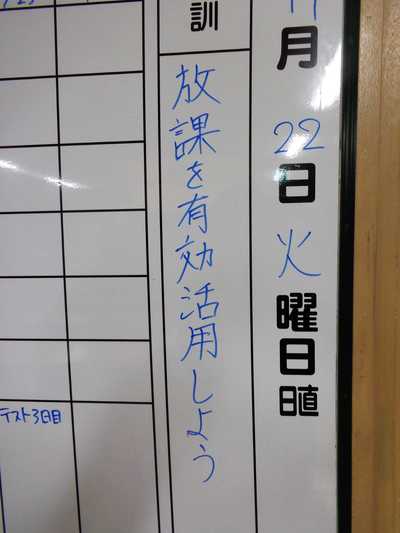 11月22日火曜日直
訓
放課を有効活用しよう
テスト3日目